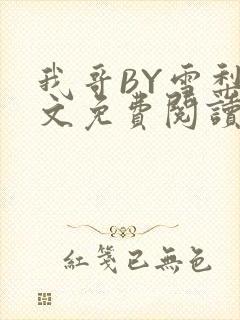 我哥BY雪梨
文免费閱讀
紅箋已無色